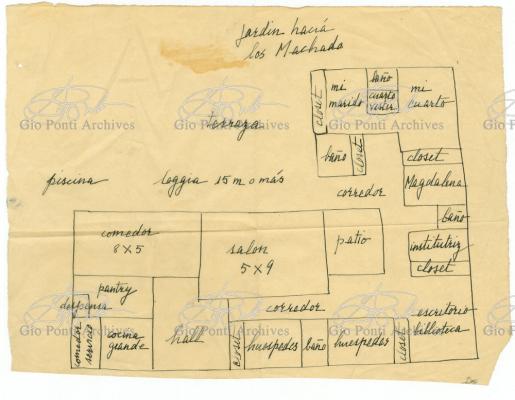 Jardin hacia
los Machado
closet
mi
marido
baño
cuarto
vestir
mi
cuarto
terraza
baño
closet
closet
corredor
Magdalena
piscina
loggia 15 m o más
baño
comedor
8 x 5
salon
5 x 9
patio
institutriz
closet
pantry
despensa
corredor
escritorio
biblioteca
comedor
servicio
cocina
grande
hall
closet
huespedes
baño
huespedes
closet
Gio Ponti Archives
Gio Ponti Archives
Gio Ponti Archives
Gio Ponti Archives
Gio Ponti Archives
Gio Ponti Archives
Gio Ponti Archives
Gio Ponti Archives